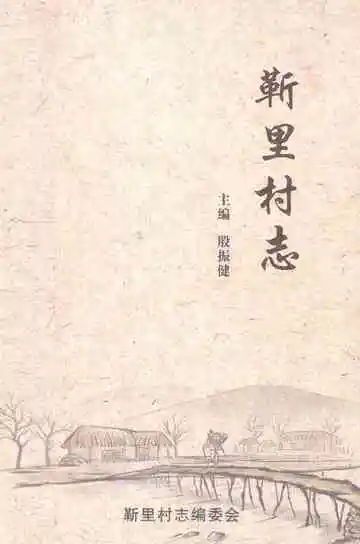 靳里村志
主编 殷振健
靳里村志编委会